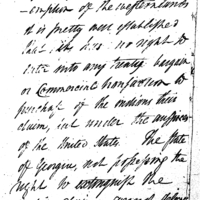 -emption of the western lands
it is pretty well established
that it has no right to
enter into any treaty bargain
or Commercial transaction to
purchase of the indians their
claim, but under the auspices
of the United States. The State
of Georgia, not possessing the
right to extinguish the